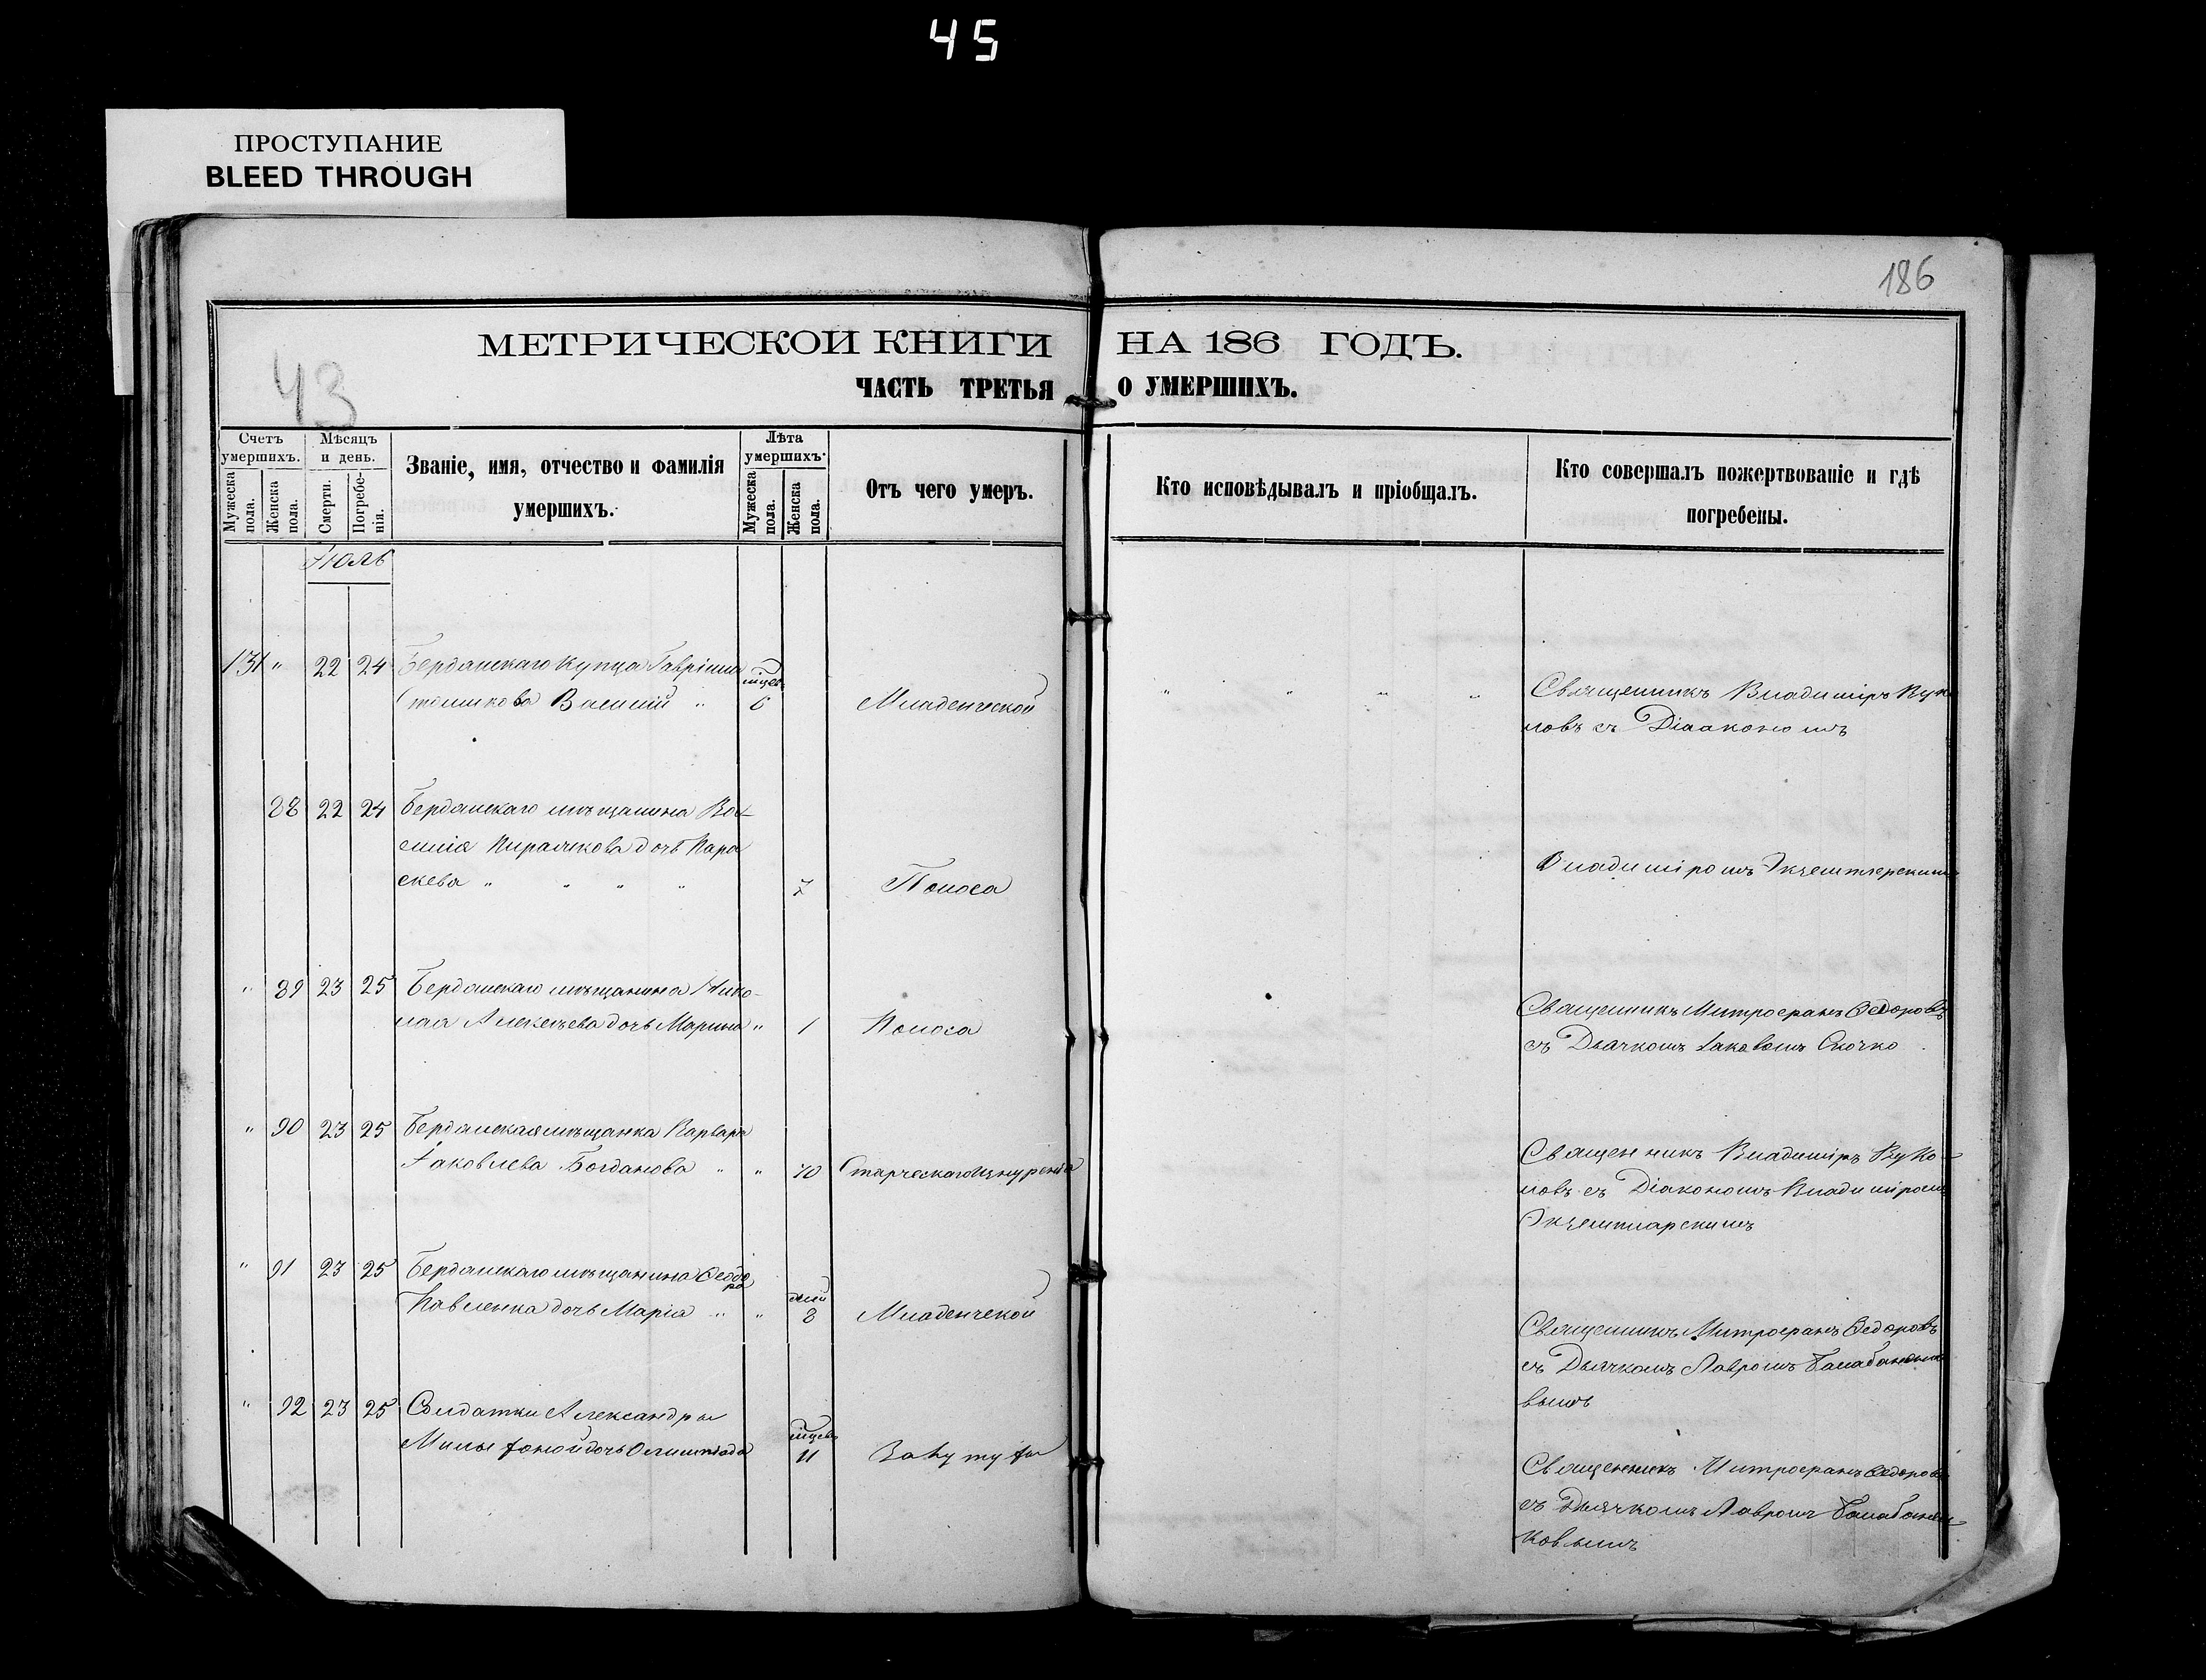 45
ПРОСТУПАНИЕ
BLEED THROUGH
186
МЕТРИЧЕСКОИ КНИГИ НА 186 ГОДЪ.
43
ЧАСТЬ ТРЕТЬЯ О УМЕРШИХЪ.
Счетъ умершихъ.
Мужеска пола.
Женска пола.
Мѣсяцъ и день.
Смерти.
Погребе-
нія.
Званіе, имя, отчество и фамилія
умершихъ.
Лѣта умершихъ.
Мужеска пола.
Женска пола.
Отъ чего умеръ.
Кто исповѣдывалъ и пріобщалъ.
Кто совершалъ пожертвованіе и гдѣ
погребены.
Іюль
131 " 22 24 Бердянскаго Купца Гавріила
Василій " мцев 6 Младенческой
Священникъ Владиміръ Вуко
ловъ съ Діакономъ
88 22 24 Бердянскаго мѣщанина Ва
силія дочь Пара
скева " " " " 7 Поноса
Владиміромъ Экземплярскимъ
" 89 23 25 Бердянскаго мѣщанина Нико-
лая Алексѣева дочь Марина " 1 Поноса
Священникъ Митрофанъ Федоровъ
съ Дьячкомъ Іаковомъ Скочко
" 90 23 25 Бердянская мѣщанка Варвара
Іаковлева Богданова " " 70 Старческаго изнуренія
Священникъ Владиміръ Вуко
ловъ съ Діакономъ Владиміромъ
Экземплярскимъ
" 91 23 25 Бердянскаго мѣщанина Федо
ра
Павленка дочь Марія " " дней 8 Младенческой
Священникъ Митрофанъ Федоровъ
съ Дьячкомъ Лавромъ
вымъ
" 92 23 25 Солдатки Александры
дочь Олимпіада мцев 11
Священникъ Митрофанъ Федоровъ
съ Дьячкомъ Лавромъ
ковымъ